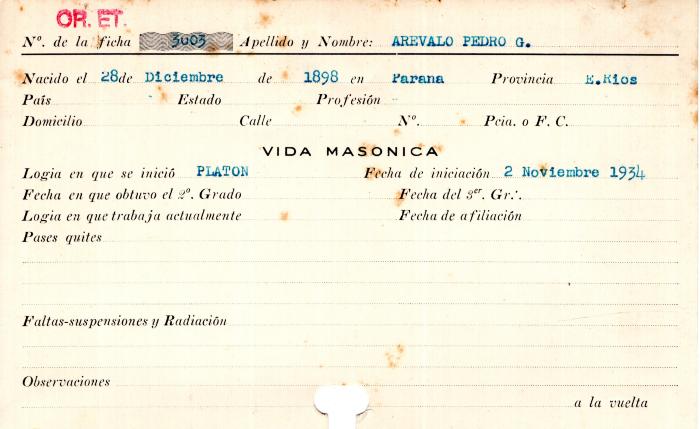 OR. ET.
Nº. de la ficha 3003 Apellido y Nombre: AREVALO PEDRO G.
Nacido el 28 de Diciembre de 1898 en Parana Provincia E.Rios
País Estado Profesión
Domicilio Calle Nº. Pcia. o F. C.
VIDA MASONICA
Logia en que se inició PLATON Fecha de iniciación 2 Noviembre 1934
Fecha en que obtuvo el 2º. Grado Fecha del 3er. Gr∴
Logia en que trabaja actualmente Fecha de afiliación
Pases quites
Faltas-suspensiones y Radiación
Observaciones
a la vuelta